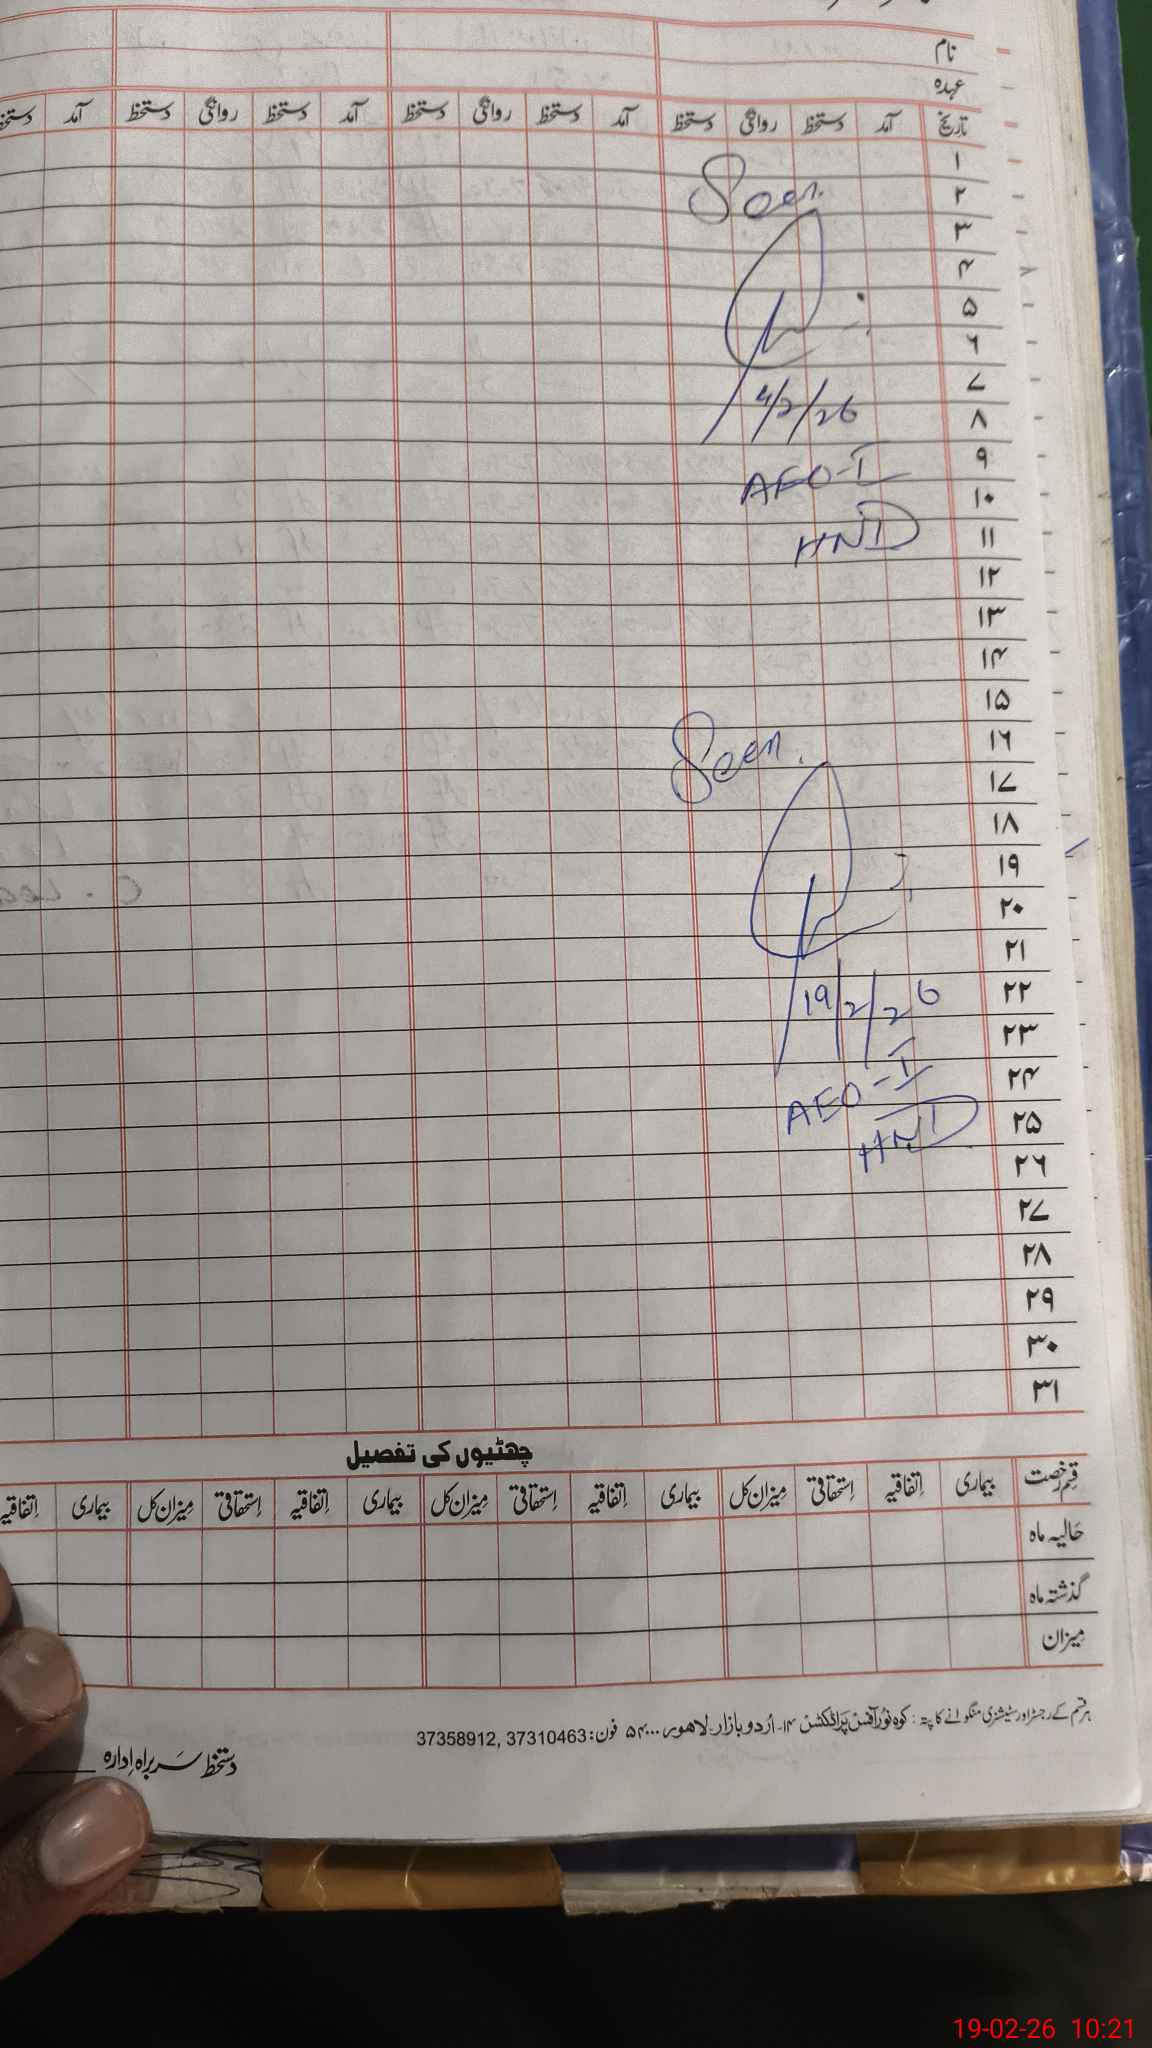 نام
عہدہ
تاریخ آمد دستخط روانگی دستخط آمد دستخط روانگی دستخط آمد دستخط روانگی دستخط آمد دستخط
۱
۲
Seen.
۳
۴
۵
۶
۷
۸
4/2/26
۹
AEO-I
۱۰
۱۱
HND
۱۲
۱۳
۱۴
۱۵
۱۶
Seen.
۱۷
۱۸
۱۹
۲۰
۲۱
۲۲
19/2/26
۲۳
۲۴
AEO-I
۲۵
HND
۲۶
۲۷
۲۸
۲۹
۳۰
۳۱
چھٹیوں کی تفصیل
قسم رخصت بیماری اِتفاقیہ اِستحقاقی مِیزان کل بیماری اِتفاقیہ اِستحقاقی مِیزان کل بیماری اِتفاقیہ اِستحقاقی مِیزان کل بیماری اِتفاقیہ
حَالیہ ماہ
گذشتہ ماہ
مِیزان
ہر قسم کے رجسٹر اور سٹیشنری منگوانے کا پتہ : کوہ نُور آفس پَراڈکٹس ۱۴- اُردو بازار۔ لاھور ۵۴۰۰۰ فون : 37310463 ,37358912
دستخط سَربراہ اِدارہ
19-02-26 10:21